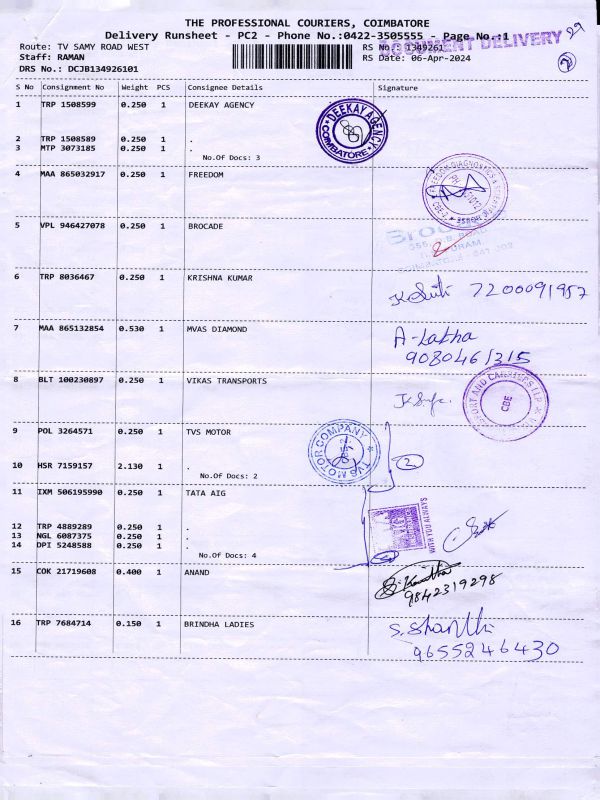 THE PROFESSIONAL COURIERS, COIMBATORE
Delivery Runsheet - PC2 - Phone No.:0422-3505555 - Page No.:1
DOCUMENT DELIVERY 29
Route: TV SAMY ROAD WEST RS No : 1349261
Staff: RAMAN RS Date: 06-Apr-2024
DRS No.: DCJB134926101
S No Consignment No Weight PCS Consignee Details Signature
1 TRP 1508599 0.250 1 DEEKAY AGENCY
DEEKAY AGENCY COIMBATORE
2 TRP 1508589 0.250 1 .
3 MTP 3073185 0.250 1 .
No.Of Docs: 3
4 MAA 865032917 0.250 1 FREEDOM
5 VPL 946427078 0.250 1 BROCADE
Brocade
6 TRP 8036467 0.250 1 KRISHNA KUMAR
7200091957
7 MAA 865132854 0.530 1 MVAS DIAMOND
A-Lakha
9080461315
8 BLT 100230897 0.250 1 VIKAS TRANSPORTS
CBE
9 POL 3264571 0.250 1 TVS MOTOR
TVS MOTOR COMPANY
10 HSR 7159157 2.130 1 .
No.Of Docs: 2
2
11 IXM 506195990 0.250 1 TATA AIG
WITH YOU ALWAYS
12 TRP 4889289 0.250 1 .
13 NGL 6087375 0.250 1 .
14 DPI 5248588 0.250 1 .
No.Of Docs: 4
15 COK 21719608 0.400 1 ANAND
9842319298
16 TRP 7684714 0.150 1 BRINDHA LADIES
S. Shanthi
9655246430